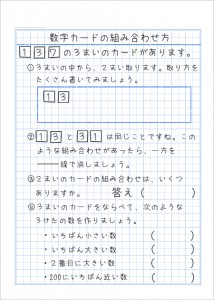 数字カードの組み合わせ方
1 3 7 の3まいのカードがあります。
①3まいの中から、2まい取ります。取り方を
たくさん書いてみましょう。
1 3
②1 3 と 3 1 は同じことですね。この
ような組み合わせがあったら、一方を
───線で消しましょう。
③2まいのカードの組み合わせは、いくつ
ありますか。 答え ( )
④3まいのカードをならべて、次のような
3けたの数を作りましょう。
・いちばん小さい数 ( )
・いちばん大きい数 ( )
・2番目に大きい数 ( )
・200にいちばん近い数 ( )